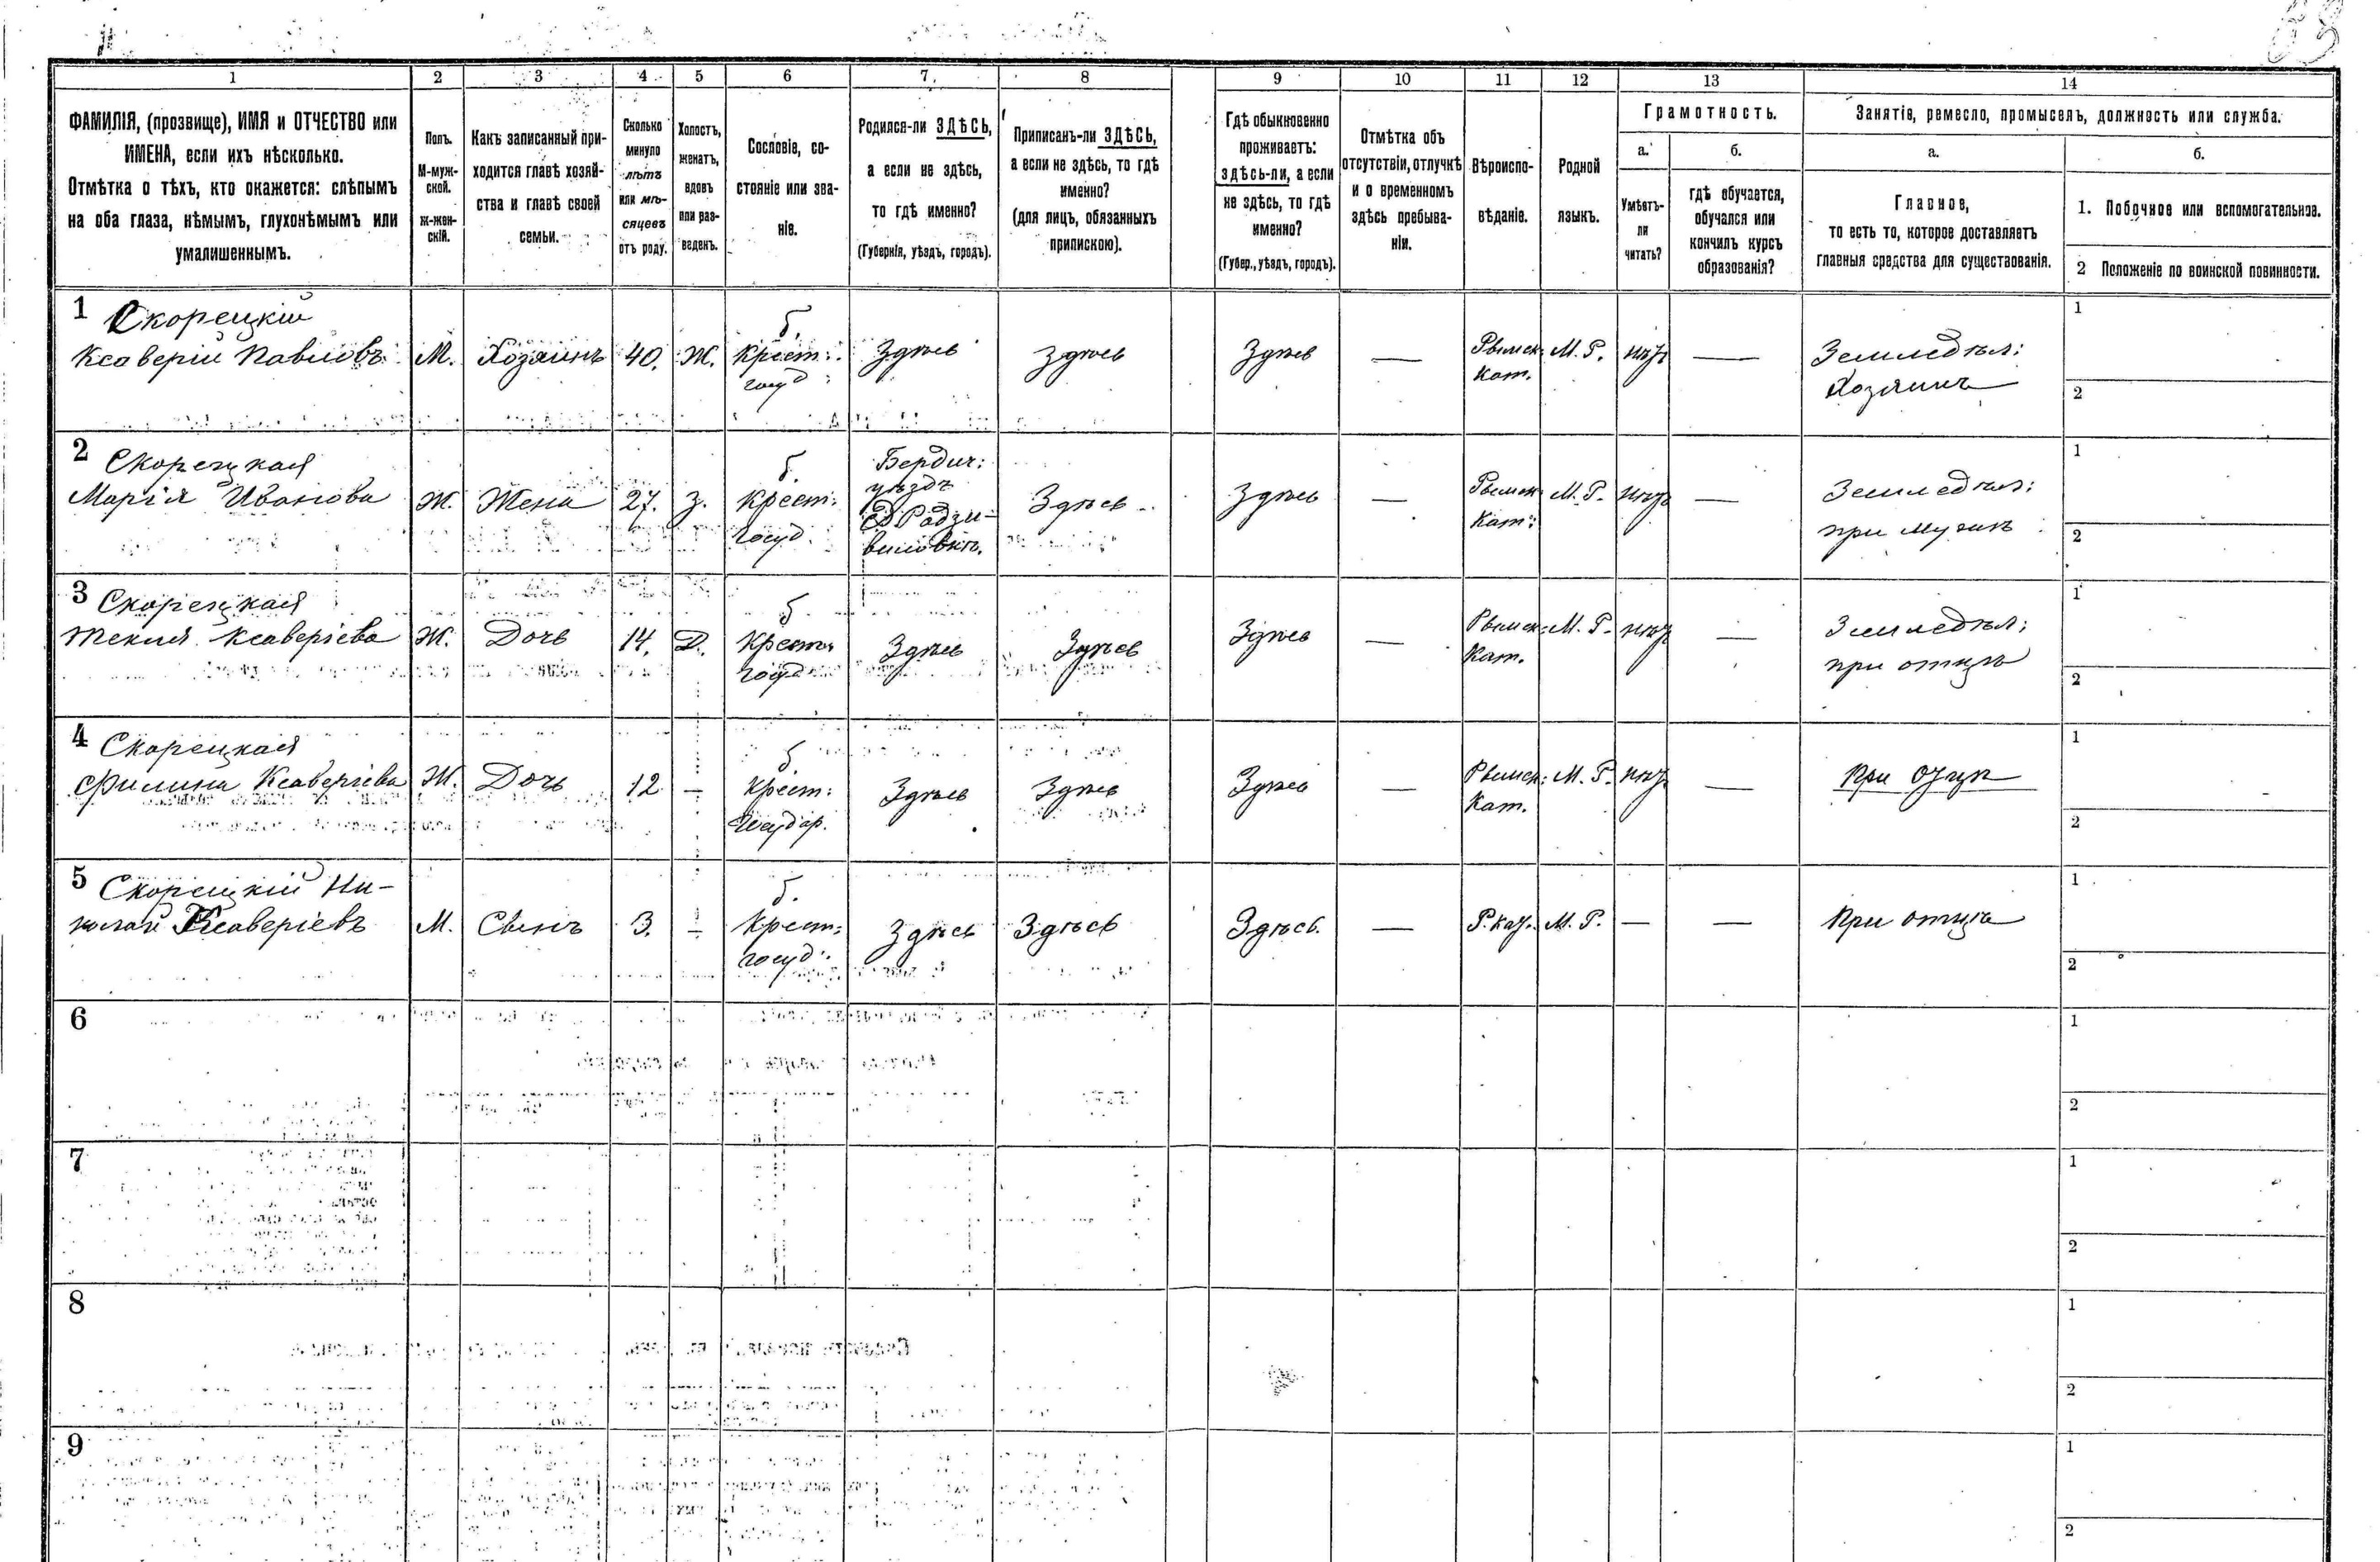 63
1 2 3 4 5 6 7 8 9 10 11 12 13 14
ФАМИЛІЯ, (прозвище), ИМЯ и ОТЧЕСТВО или
ИМЕНА, если ихъ нѣсколько.
Отмѣтка о тѣхъ, кто окажется: слѣпымъ
на оба глаза, нѣмымъ, глухонѣмымъ или
умалишеннымъ.
Полъ.
М-муж-
ской.
ж-жен-
скій.
Какъ записанный при-
ходится главѣ хозяй-
ства и главѣ своей
семьи.
Сколько
минуло
лѣтъ
или мѣ-
сяцевъ
отъ роду.
Холостъ,
женатъ,
вдовъ
или раз-
веденъ.
Сословіе, со-
стояніе или зва-
ніе.
Родился-ли ЗДѢСЬ,
а если не здѣсь,
то гдѣ именно?
(Губернія, уѣздъ, городъ).
Приписанъ-ли ЗДѢСЬ,
а если не здѣсь, то гдѣ
именно?
(для лицъ, обязанныхъ
припискою).
Гдѣ обыкновенно
проживаетъ:
здѣсь-ли, а если
не здѣсь, то гдѣ
именно?
(Губер., уѣздъ, городъ).
Отмѣтка объ
отсутствіи, отлучкѣ
и о временномъ
здѣсь пребыва-
ніи.
Вѣроиспо-
вѣданіе.
Родной
языкъ.
Грамотность.
а.
Умѣетъ-
ли
читать?
б.
гдѣ обучается,
обучался или
кончилъ курсъ
образованія?
Занятіе, ремесло, промыселъ, должность или служба.
а.
Главное,
то есть то, которое доставляетъ
главныя средства для существованія.
б.
1. Побочное или вспомогательное.
2 Положеніе по воинской повинности.
1 Скорецкій
Ксаверій Павловъ М. Хозяинъ 40. Ж.
б.
Крест:
госуд:
Здѣсь Здѣсь Здѣсь —
Рымск:
Кат.
М. Р. нѣт —
Земледѣл:
Хозяинъ
1
2
2 Скорецкая
Марія Иванова Ж. Жена 27. З.
б.
Крест:
госуд.
Бердич:
уѣздъ
Радзи-
виловкѣ.
Здѣсь Здѣсь —
Рымск:
Кат:
М. Р. нѣт —
Земледѣл:
при мужѣ
1
2
3 Скорецкая
Текля Ксаверіева Ж. Дочь 14. Д.
б
Крест:
госуд
Здѣсь Здѣсь Здѣсь —
Рымск:
Кат.
М. Р. нѣт —
Земледѣл:
при отцѣ
1
2
4 Скорецкая
Филина Ксаверіева Ж. Дочь 12 —
б
Крест:
Государ.
Здѣсь Здѣсь Здѣсь —
Рымск:
Кат.
М. Р. нѣт —
при отцѣ
1
2
5 Скорецкій Ни-
колай Ксаверіевъ М. Сынъ 3. —
б.
Крест:
госуд:
Здѣсь Здѣсь Здѣсь. — Р. кат. М. Р. — —
При отцѣ
1
2
6
1
2
7
1
2
8
1
2
9
1
2